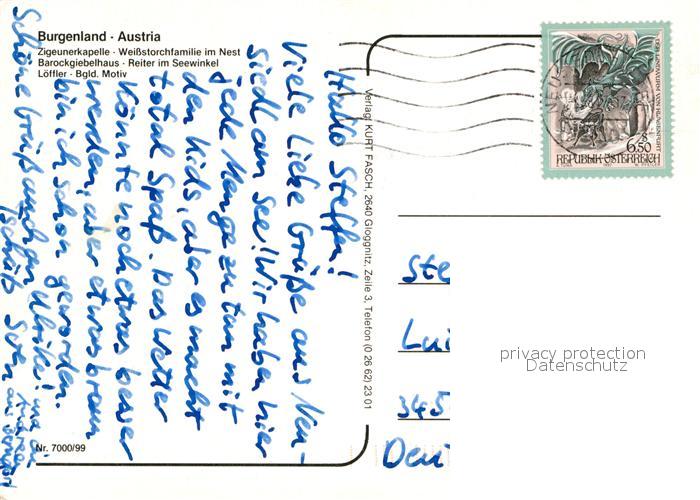 Burgenland · Austria
Zigeunerkapelle · Weißstorchfamilie im Nest
Barockgiebelhaus · Reiter im Seewinkel
Löffler · Bgld. Motiv
Hallo Steffen!
Viele Liebe Grüße aus Neu-
siedl am See! Wir haben hier
jede Menge zu tun mit
den Kids, aber es macht
total Spaß. Das Wetter
könnte noch etwas besser
werden, aber etwas braun
bin ich schon geworden.
Schöne Grüße auch an Ulrike, und
Tschüß Sven
Verlag: KURT FASCH, 2640 Gloggnitz, Zeile 3, Telefon (0 26 62) 23 01
Nr. 7000/99
6.50
REPUBLIK ÖSTERREICH
Ste
Lui
345
Deu
privacy protection
Datenschutz